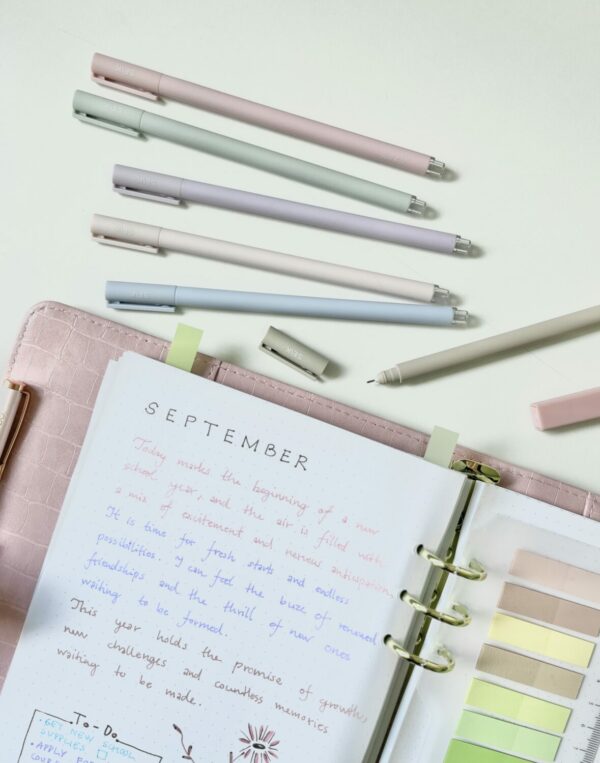 SEPTEMBER
Today marks the beginning of a new
school year, and the air is filled with
a mix of excitement and nervous anticipation.
It is time for fresh starts and endless
possibilities. I can feel the buzz of renewed
friendships and the thrill of new ones
waiting to be formed.
This year holds the promise of growth,
new challenges and countless memories
waiting to be made.
To-Do
• GET NEW SCHOOL
SUPPLIES
• APPLY FOR